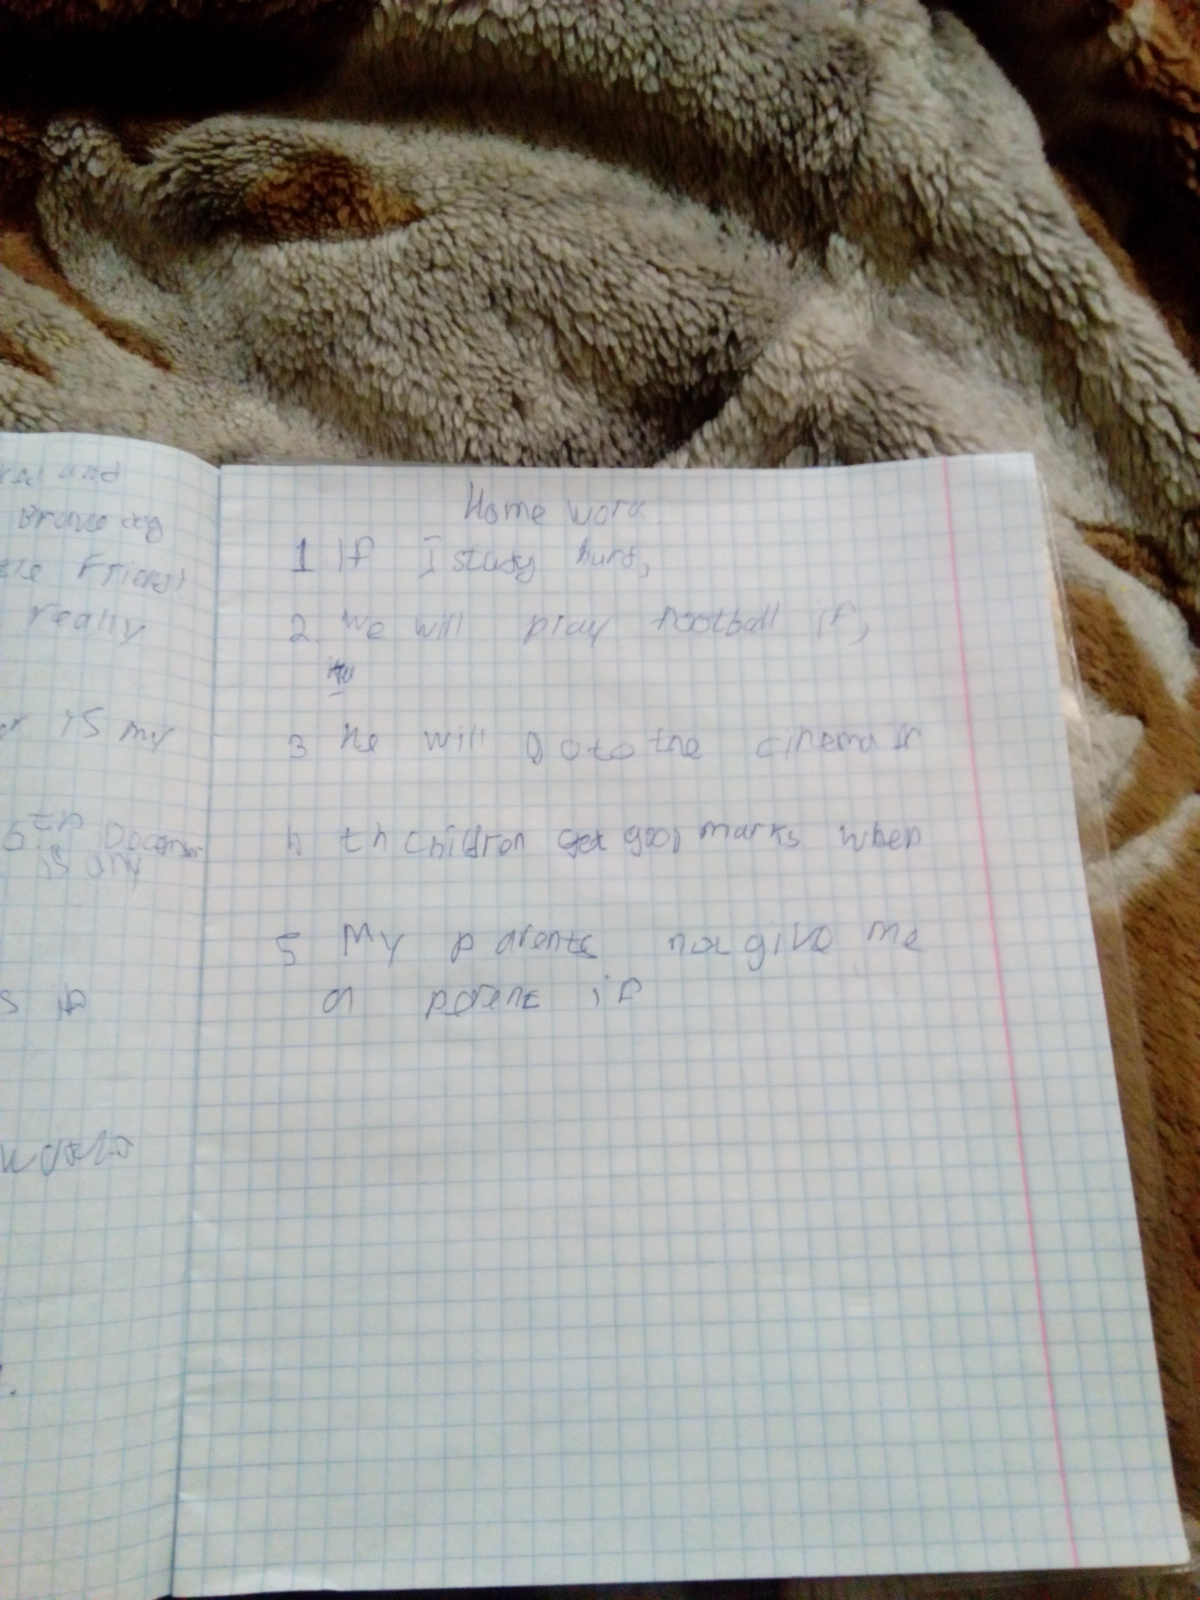 and
brave dog
the Friend
really
is my
6th Decem
is any
s if
Home work.
1 If I study hurd,
2 we will play football if,
3 he will go to the cinema if
4 th children get good marks when
5 My parents not give me
a parent if